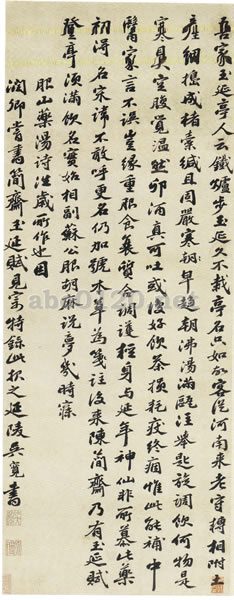 吾家玉延亭人云鐵爐步玉延久不栽亭名只如故客從河南來老守轉相附土
產細搗成楮素緘且固嚴寒朝早起朝沸湯滿甌注舉匙旋調飲何物是
寒具空腹覺溫然卯酒真可吐或復好飲茶損耗疾終痼惟此能補中
醫家言不誤豈緣重服食養質合調護輕身與延年神仙非所慕此藥
初得名宋諱不敢呼更名仍加號本草為箋註後來陳簡齋乃有玉延賦
登亭須滿飲名實始相副蘇公服胡麻說夢幾時寤
服山藥湯詩往歲所作近因
潤卿嘗書簡齋玉延賦見寄特錄此報之延陵吳寬書